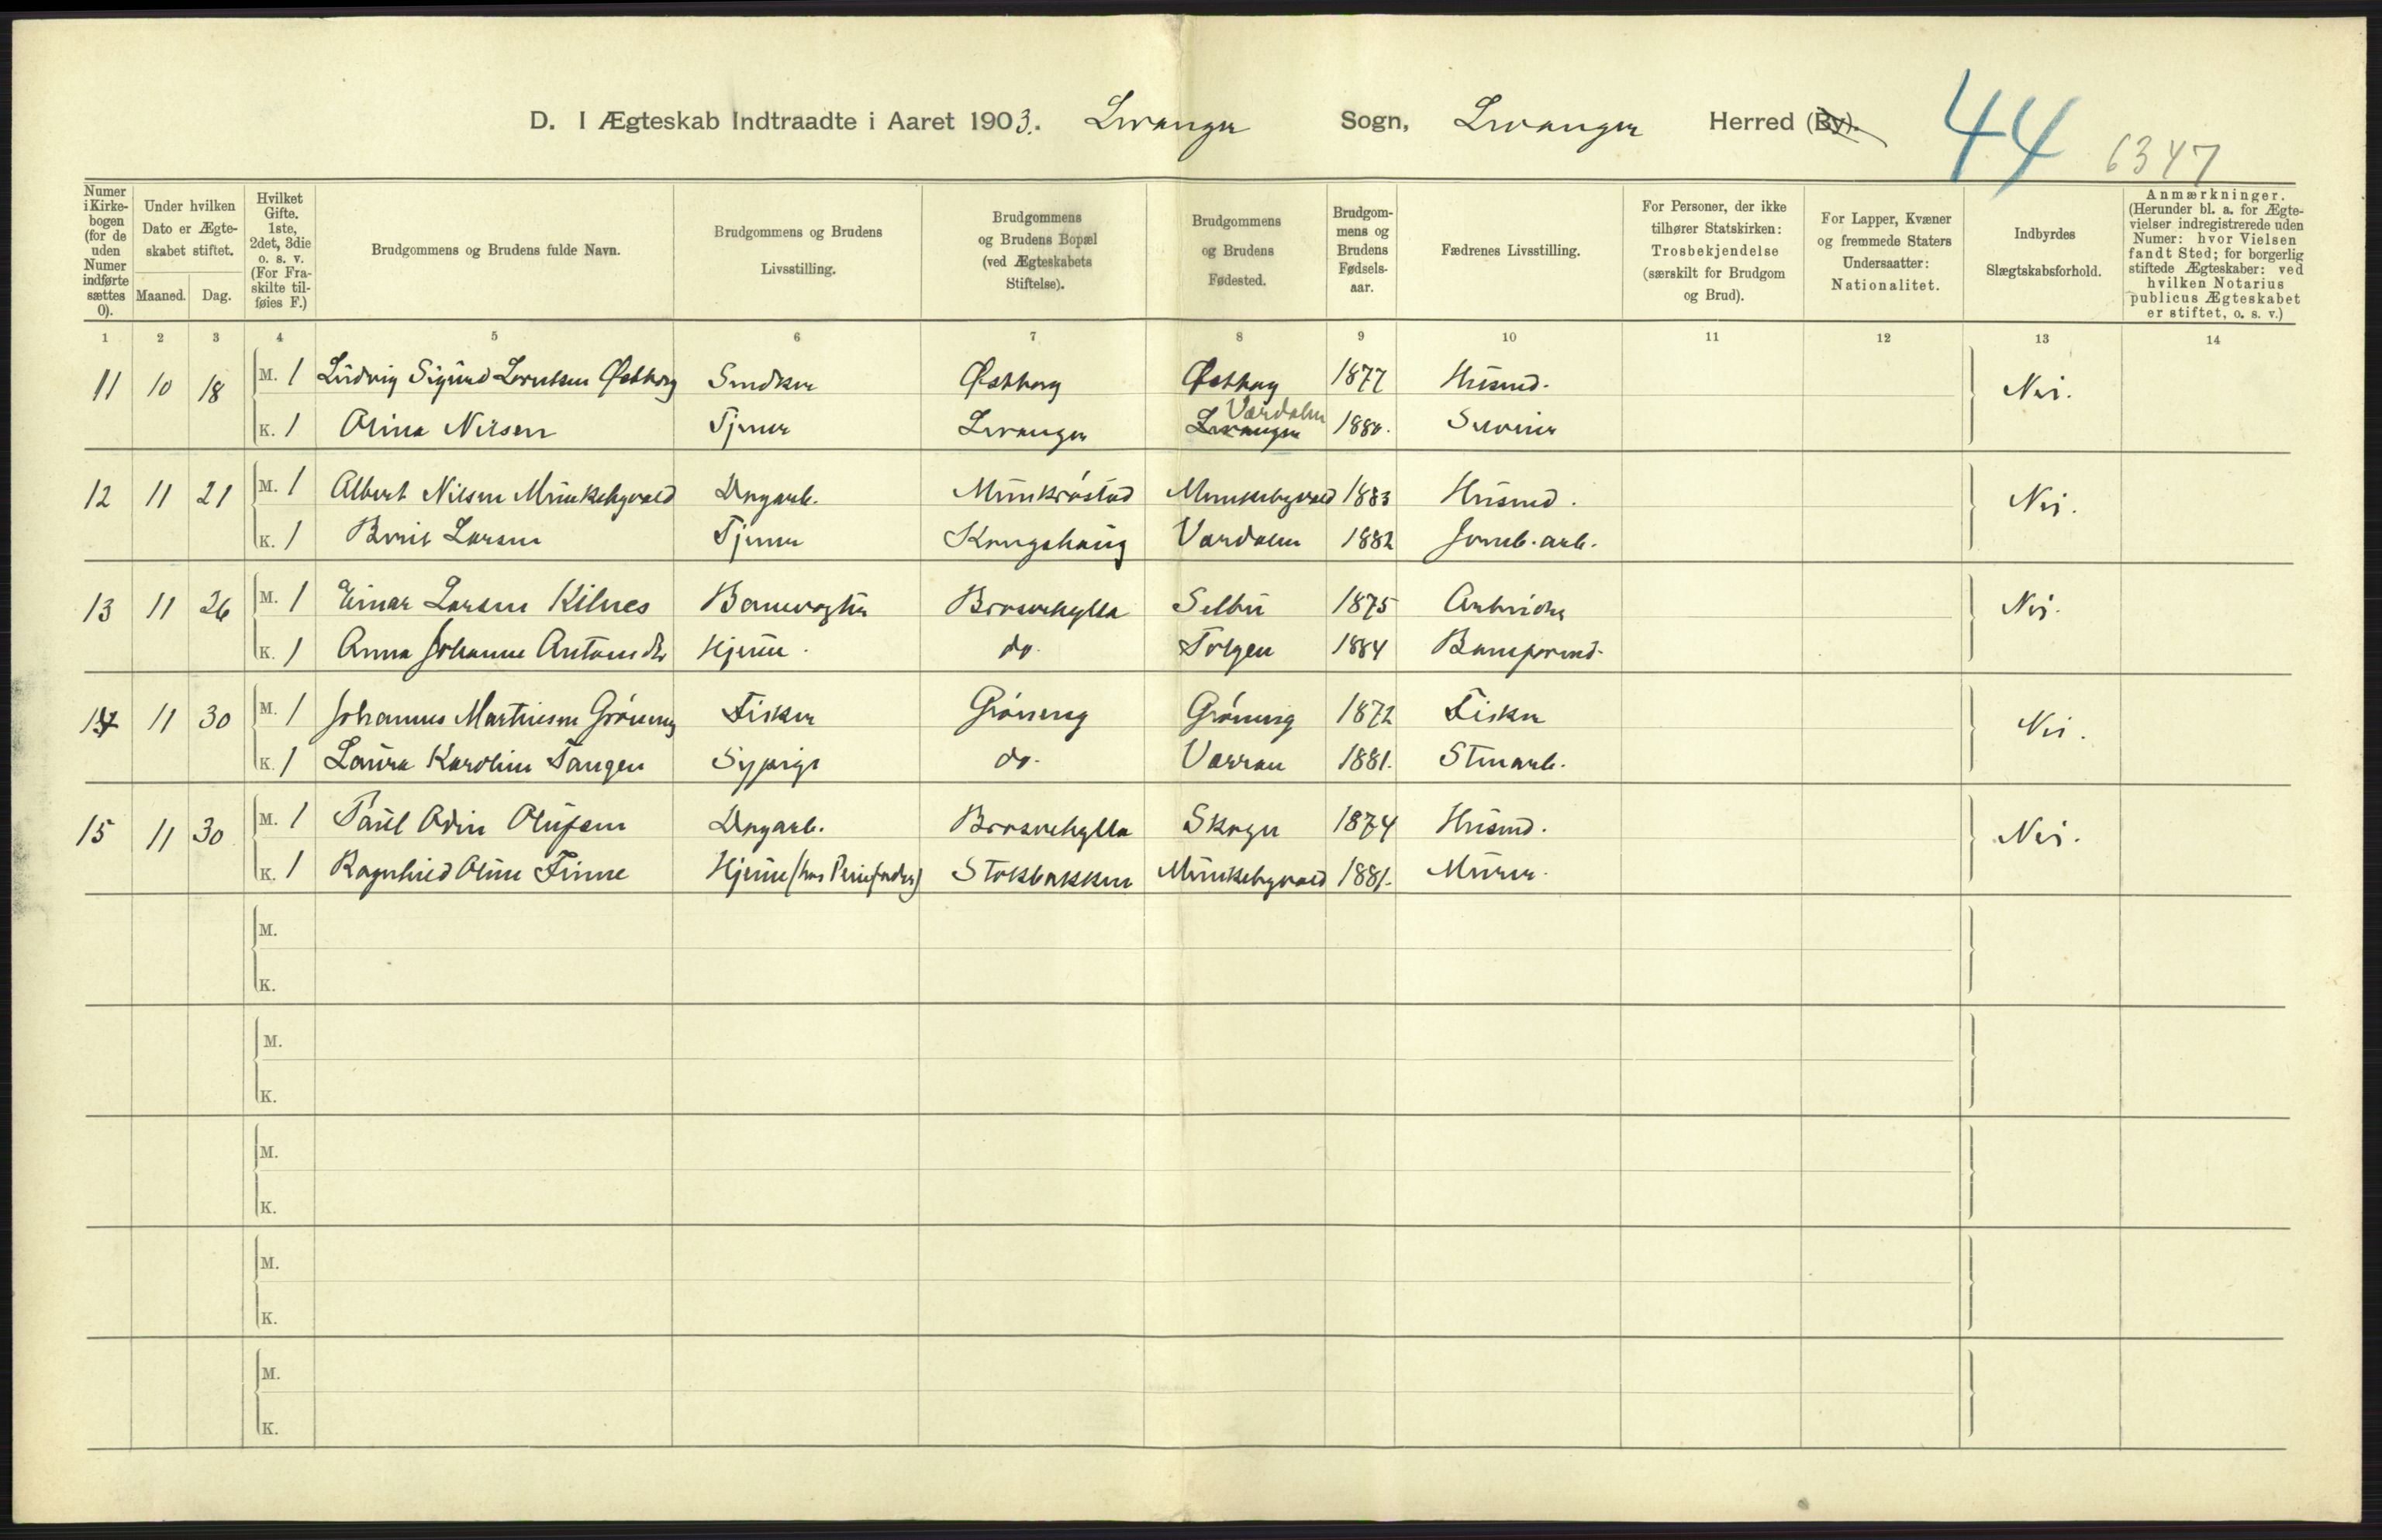 D. I Ægteskab Indtraadte i Aaret 1903. Levanger Sogn, Levanger Herred (By).
44 6347
Numer i Kirkebogen (for de uden Numer indførte sættes 0).
Under hvilken Dato er Ægteskabet stiftet.
Maaned. Dag.
Hvilket Gifte. 1ste, 2det, 3die o. s. v. (For Fraskilte tilføies F.)
Brudgommens og Brudens fulde Navn.
Brudgommens og Brudens Livsstilling.
Brudgommens og Brudens Bopæl (ved Ægteskabets Stiftelse).
Brudgommens og Brudens Fødested.
Brudgommens og Brudens Fødselsaar.
Fædrenes Livsstilling.
For Personer, der ikke tilhører Statskirken: Trosbekjendelse (særskilt for Brudgom og Brud).
For Lapper, Kvæner og fremmede Staters Undersaatter: Nationalitet.
Indbyrdes Slægtskabsforhold.
Anmærkninger. (Herunder bl. a. for Ægtevielser indregistrerede uden Numer: hvor Vielsen fandt Sted; for borgerlig stiftede Ægteskaber: ved hvilken Notarius publicus Ægteskabet er stiftet, o. s. v.)
1 2 3 4 5 6 7 8 9 10 11 12 13 14
11 10 18 M. 1 Ludvig Sigurd Lorntsen Østborg Snedker Østborg Østborg 1877 Husmd. Nei.
Værdalen
K. 1 Olina Nilsen Tjener Levanger Levanger 1880.
12 11 21 M. 1 Albert Nilsen Munkebyvald Dagarb. Munkrøstad Munkebyvald 1883 Husmd. Nei.
K. 1 Berit Larsen Tjener Kongshaug Værdalen 1882 Jernb. arb.
13 11 26 M. 1 Einar Larsen Kilnes Banevogter Brusvehylla Selbu 1875 Arbeider Nei.
K. 1 Anna Johanne Antonsdtr Hjemme. do. Tolgen 1884 Baneformd.
14 11 30 M. 1 Johannes Martinsen Grønning Fisker Grønning Grønning 1872 Fisker Nei.
K. 1 Laura Karoline Tangen Sypige do. Værran 1881. Stenarb.
15 11 30 M. 1 Paul Odin Olufsen Dagarb. Brusvehylla Skogn 1874 Husmd. Nei.
K. 1 Ragnhild Oline Finne Hjemme (hos Pleiefader) Stokbakken Munkebyvald 1881. Murer.
M.
K.
M.
K.
M.
K.
M.
K.
M.
K.